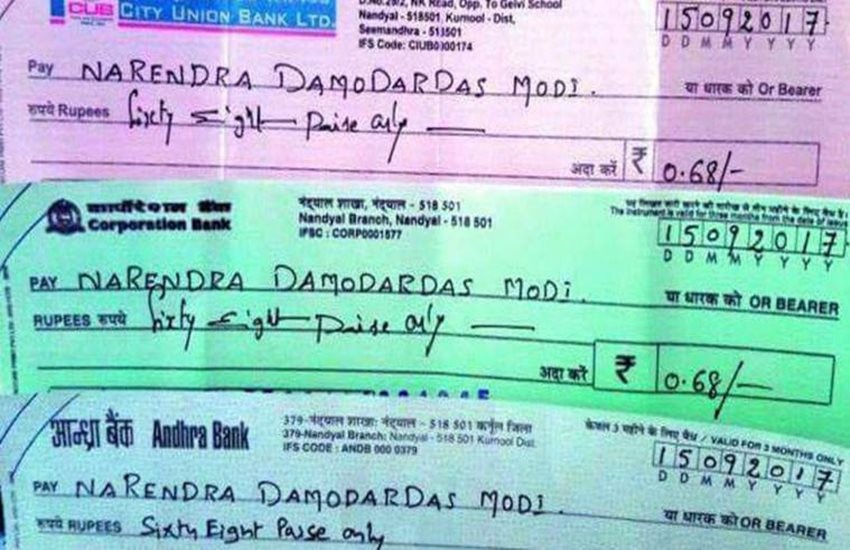 CUB CITY UNION BANK LTD.
D.No.29/2, NK Road, Opp. To Gelvi School
Nandyal - 518501, Kurnool - Dist,
Seemandhra - 518501
IFS Code: CIUB0000174
15092017
D D M M Y Y Y Y
Pay NARENDRA DAMODARDAS MODI. या धारक को Or Bearer
रुपये Rupees Sixty Eight Paise only
अदा करें ₹ 0.68/-
कार्पोरेशन बैंक
Corporation Bank
नंद्याल शाखा, नंद्याल - 518 501
Nandyal Branch, Nandyal - 518 501
IFSC : CORP0001577
The instrument is valid for three months from the date of issue
15092017
D D M M Y Y Y Y
PAY NARENDRA DAMODARDAS MODI. या धारक को OR BEARER
RUPEES रुपये Sixty Eight Paise only
अदा करें ₹ 0.68/-
आन्ध्रा बैंक Andhra Bank
379-नंद्याल शाखाः नंद्याल - 518 501 कर्नूल जिला
379-Nandyal Branch: Nandyal - 518 501 Kurnool Dist.
IFS CODE : ANDB 000 0379
केवल 3 महीने के लिए वैध / VALID FOR 3 MONTHS ONLY
15092017
D D M M Y Y Y Y
PAY NARENDRA DAMODARDAS MODI. या धारक को OR BEARER
रुपये RUPEES Sixty Eight Paise only